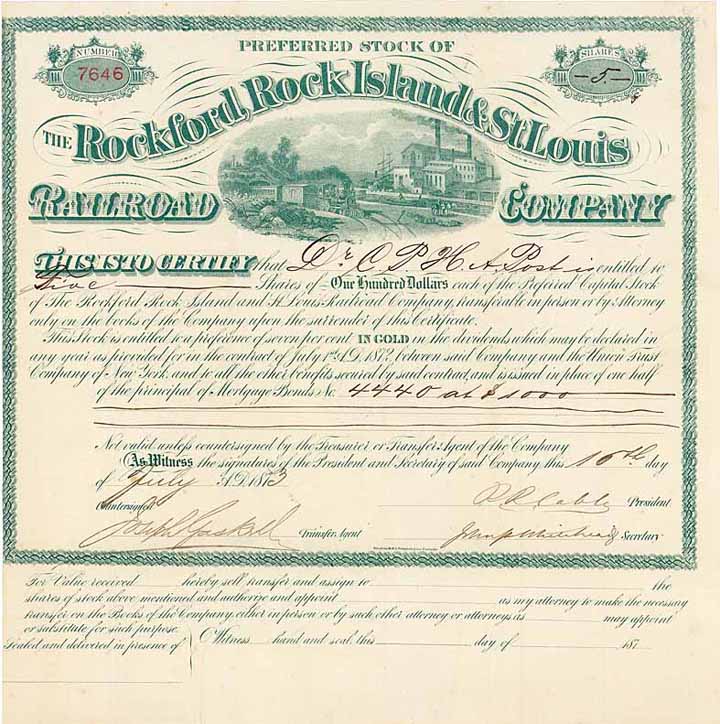 PREFERRED STOCK OF
NUMBER
7646
SHARES
5
THE ROCKFORD ROCK ISLAND & ST. LOUIS
RAILROAD COMPANY
THIS IS TO CERTIFY that Dr. C P H A Post is entitled to
Five Shares of One Hundred Dollars each of the Preferred Capital Stock
of The Rockford Rock Island and St. Louis Railroad Company, transferable in person or by Attorney
only on the books of the Company upon the surrender of this Certificate.
This Stock is entitled to a preference of seven per cent IN GOLD in the dividends which may be declared in
any year as provided for in the contract of July 1st A.D. 1872, between said Company and the Union Trust
Company of New York and to all the other benefits secured by said contract, and is issued in place of one half
of the principal of Mortgage Bonds No. 4440 at $1000
Not valid unless countersigned by the Treasurer or Transfer Agent of the Company
As Witness the signatures of the President and Secretary of said Company, this 10th day
of July A.D. 1873
Countersigned R R Cable President
Joseph Gaskell Transfer Agent John Whitehead Secretary
For Value received hereby sell transfer and assign to the
shares of stock above mentioned and authorize and appoint as my attorney to make the necessary
transfer on the Books of the Company, either in person or by such other attorney or attorneys as may appoint
or substitute for such purpose.
Sealed and delivered in presence of Witness hand and seal this day of 187